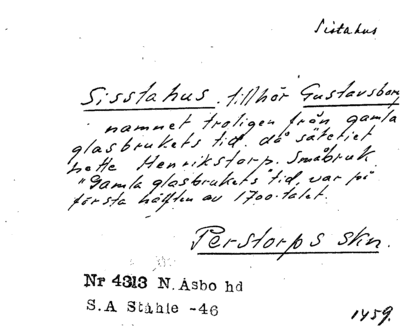 Sistahus
Sisstahus. tillhör Gustavsborg
namnet troligen från gamla
glasbrukets tid, då säteriet
hette Henrikstorp. Småbruk.
"Gamla glasbrukets" tid, var på
första hälften av 1700-talet.
Perstorps skn.
Nr 4313 N. Åsbo hd
S.A Ståhle -46
1459.